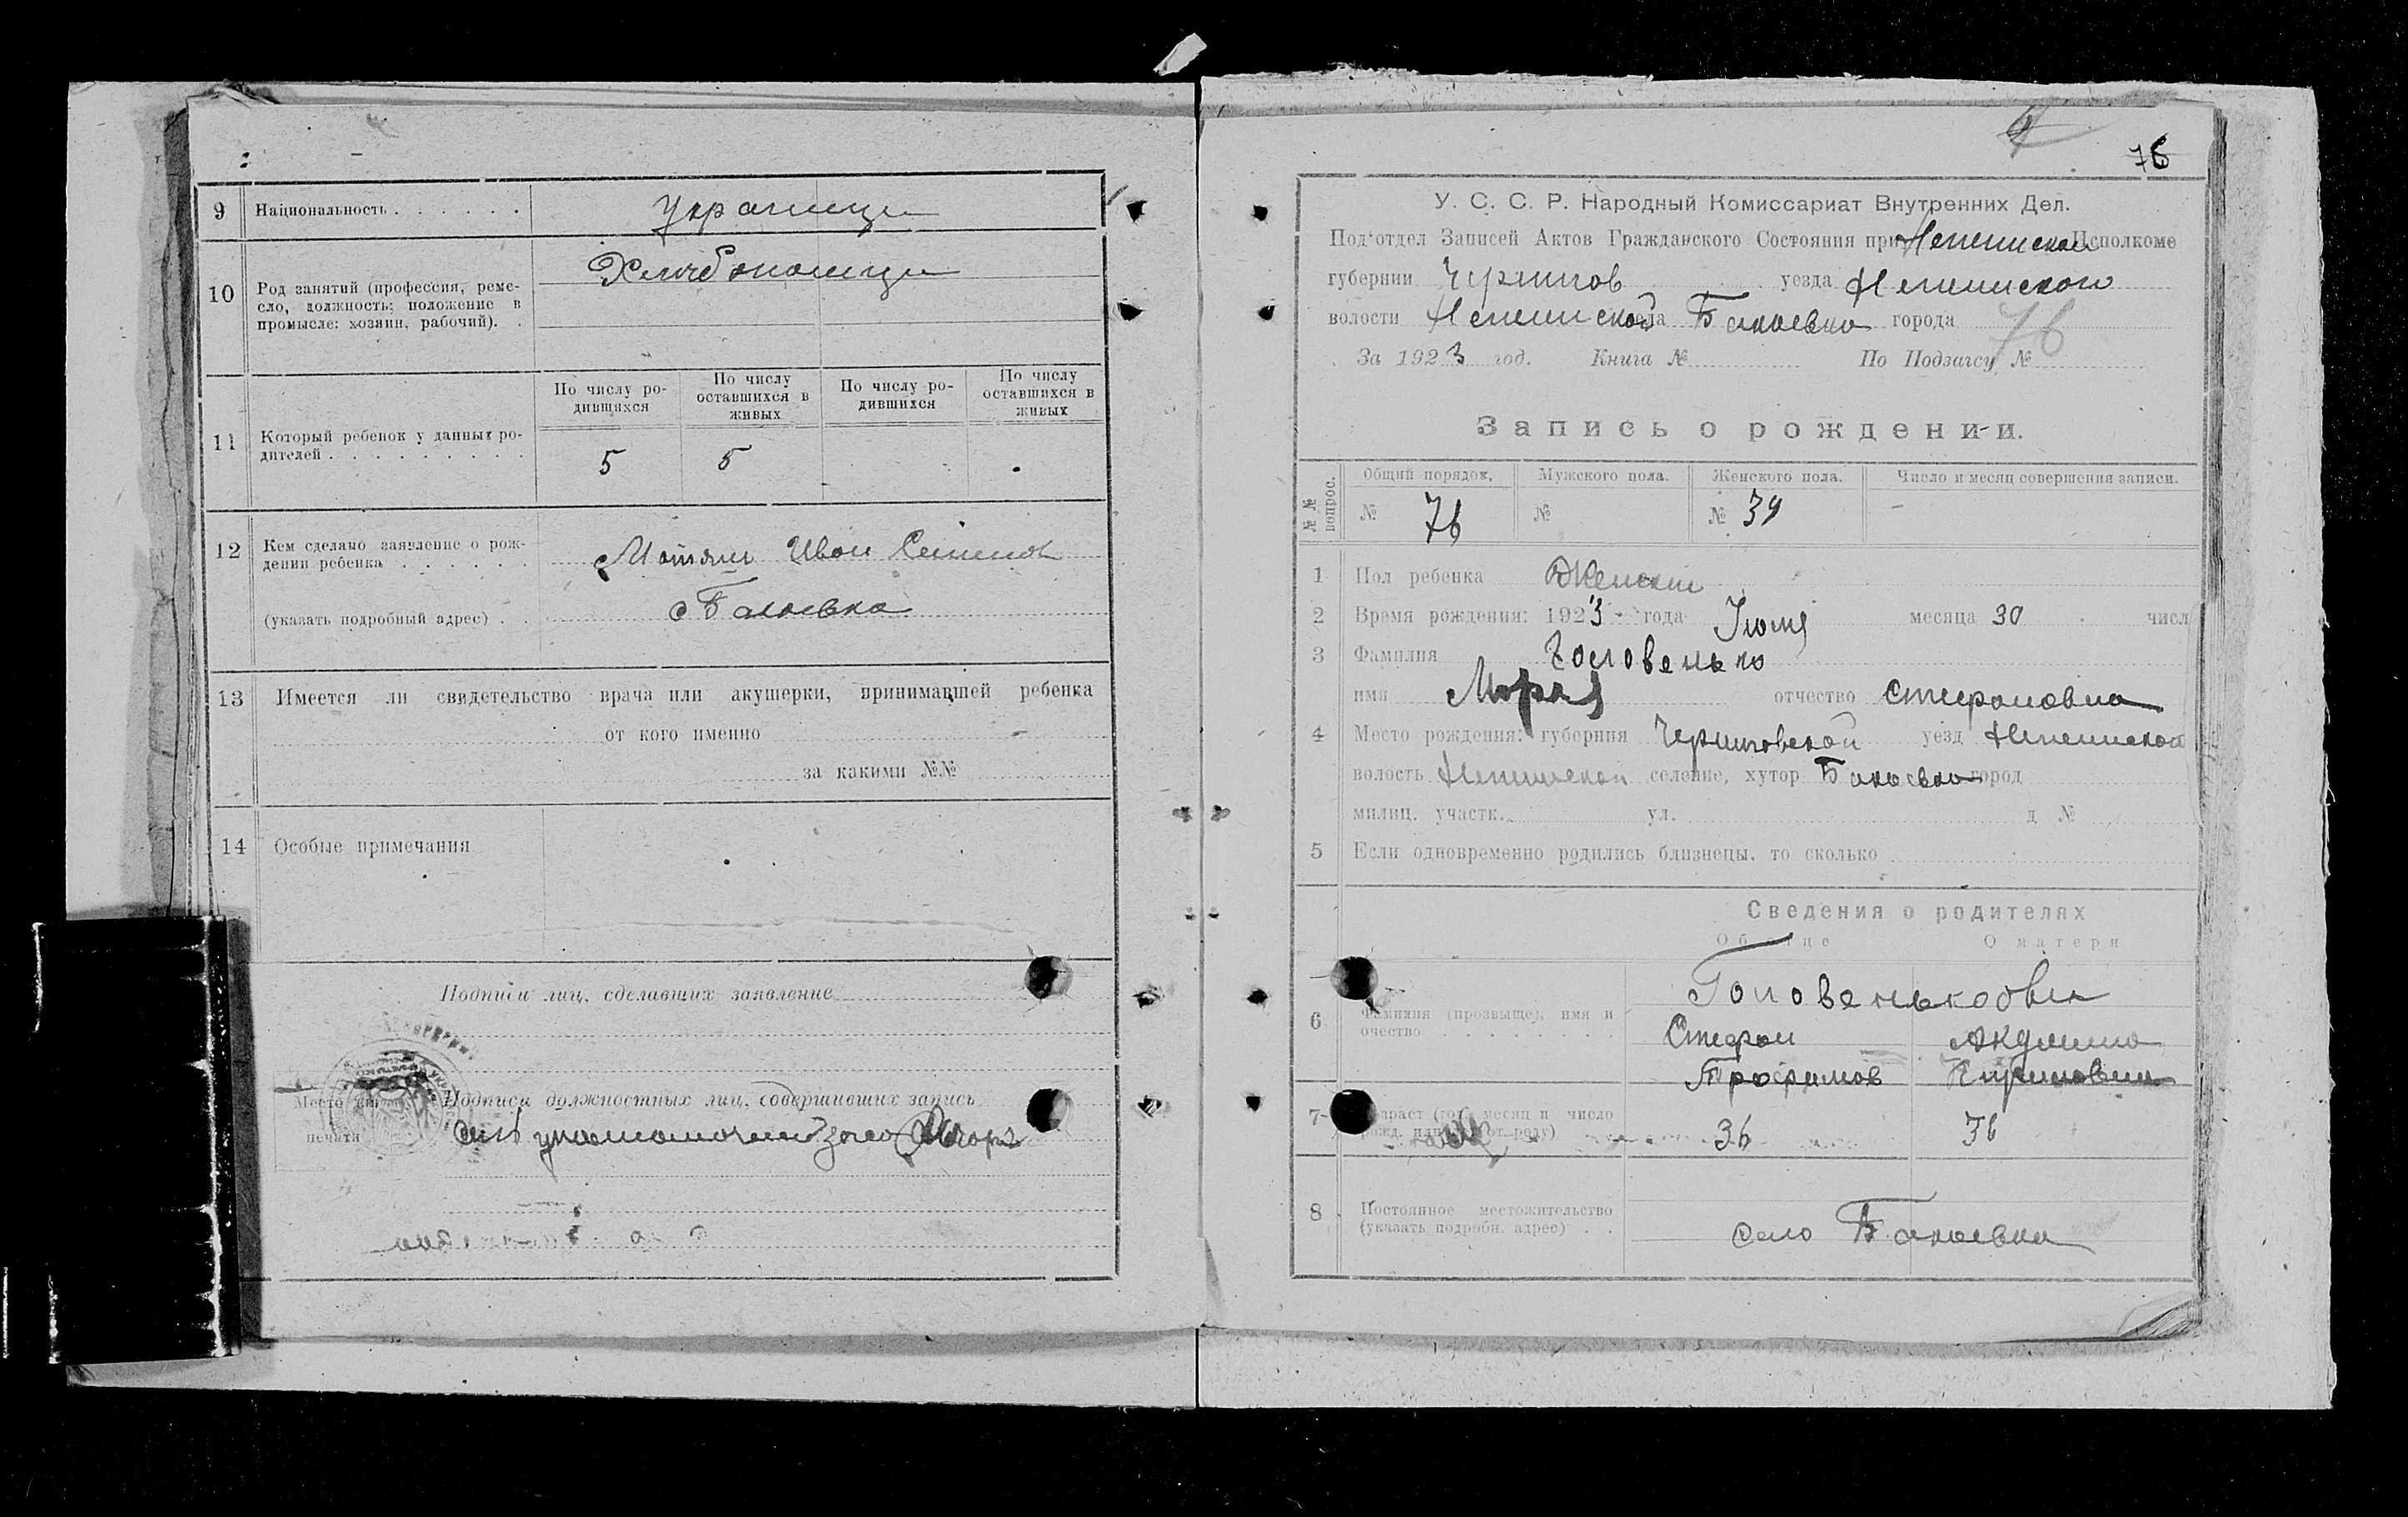 9 Національность . . . . . .
украинци
10 Род занятий (профессия, реме-
сло, должность; положение в
промысле: хозяин, рабочий). .
Хлеборобници
11 Который ребенок у данных ро-
дителей . . . . . . . . .
По числу ро-
дившихся
По числу
оставшихся в
живых
По числу ро-
дившихся
По числу
оставшихся в
живых
5 5
12 Кем сделано заявление о рож-
дении ребенка . . . . . .
Иван
(указать подробный адрес) . .
с Бакаевка
13 Имеется ли свидетельство врача или акушерки, принимавшей ребенка
от кого именно
за какими №№
14 Особые примечания
Подписи лиц, сделавших заявление
Место для
печати
Подписи должностных лиц, совершивших запись
76
У. С. С. Р. Народный Комиссариат Внутренних Дел.
Под'отдел Записей Актов Гражданского Состояния при Неженской Исполкоме
губернии Чернигов уезда Неженского
волости Неженской села Бакаевка города
76
За 1923 год. Книга № По Подзагсу №
Запись о рождении.
№ № вопрос.
Общий порядок, Мужского пола. Женского пола. Число и месяц совершения записи.
№ 76 № № 39 -
1 Пол ребенка Женский
2 Время рождения: 1923 года Июня месяца 30 числ
3 Фамилия Головенько
имя Мария отчество Стефановна
4 Место рождения: губерния Черниговской уезд Неженской
волость Неженской селение, хутор Бакаевка город
милиц. участк. ул. д №
5 Если одновременно родились близнецы, то сколько
Сведения о родителях
Об отце О матери
6 Фамилия (прозвище), имя и
очество . . . . . . . .
Головеньковы
Стефан Акулина
Трофимов
7 Возраст (год, месяц и число
рожд. или лет от роду)
36 36
8 Постоянное местожительство
(указать подробн. адрес) . .
село Бакаевка